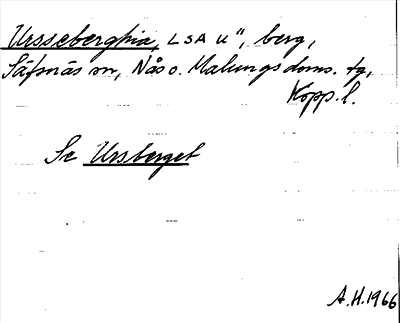 Ursseberghia, LSA U", berg,
Säfsnäs sn, Nås o. Malungs doms. tg,
Kopp. l.
Se Ursberget
A.H. 1966